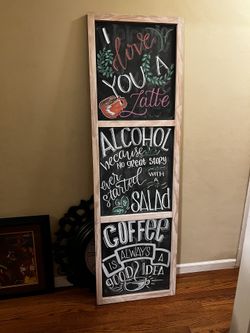 I
love
YOU A
Latte
ALCOHOL
because
no great story
ever
started
WITH
A
SALAD
COFFEE
IS ALWAYS A
good IDEA